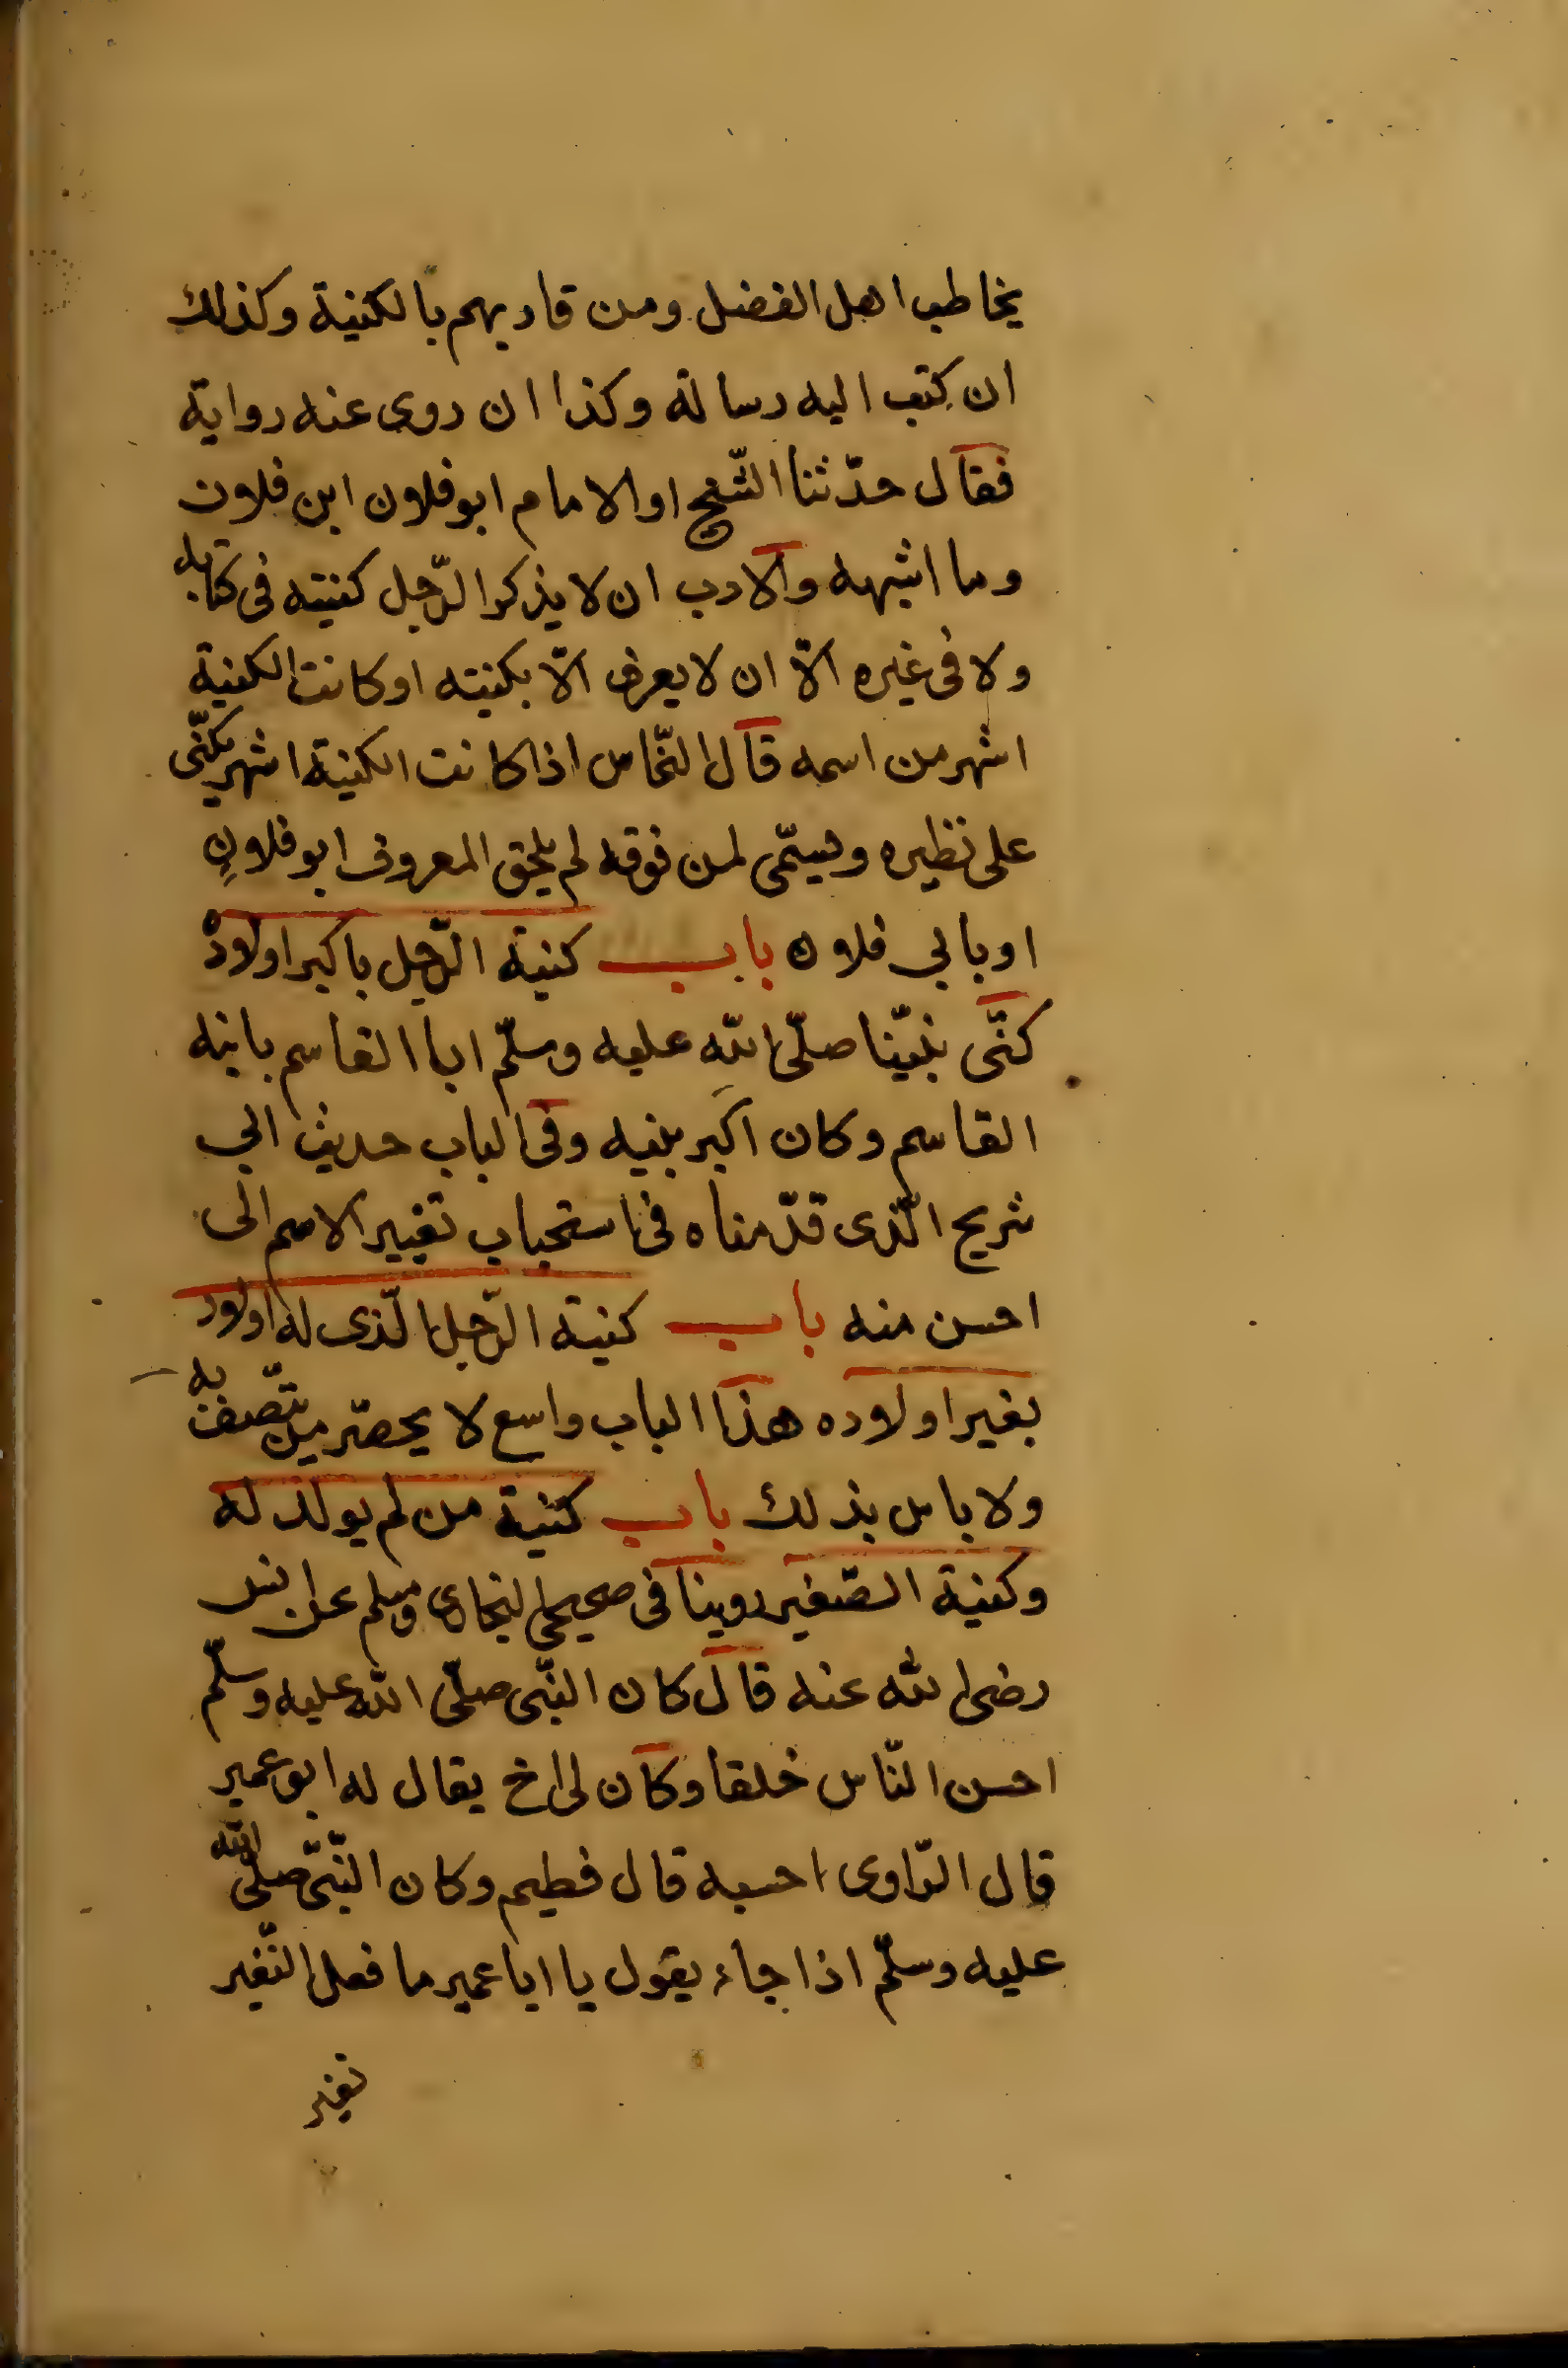 يخاطب اهل الفضل ومن قاربهم بالكنية وكذلك
ان كتب اليه رسالة وكذا ان روى عنه رواية
فقال حدّثنا الشّيخ او الامام ابو فلان ابن فلان
وما اشبهه والادب ان لا يذكر الرّجل كنيته فى كتابه
ولا فى غيره الاّ ان لا يعرف الاّ بكنيته او كانت الكنية
اشهر من اسمه قال النّحاس اذا كانت الكنية اشهر يكنّى
على نظيره ويسمّى لمن فوقه لم يلحق المعروف ابو فلانٍ
او بابي فلان باب كنية الرّجل باكبر اولاده
كنّى نبيّنا صلّى الله عليه وسلّم ابا القاسم بابنه
القاسم وكان اكبر بنيه وفى الباب حديث ابي
شريح الّذى قدّمناه فى استحباب تغيير الاسم الى
احسن منه باب كنية الرّجل الّذى له اولاد
بغير اولاده هذا الباب واسع لا يحصر من يتّصف به
ولا باس بذلك باب كنية من لم يولد له
وكنية الصّغير روينا فى صحيحي البخارى ومسلم عن انس
رضى الله عنه قال كان النّبى صلّى الله عليه وسلّم
احسن النّاس خلقا وكان لى اخ يقال له ابو عمير
قال الرّاوى احسبه قال فطيم وكان النّبىّ صلّى الله
عليه وسلّم اذا جاء يقول يا ابا عمير ما فعل النّغير
نغير